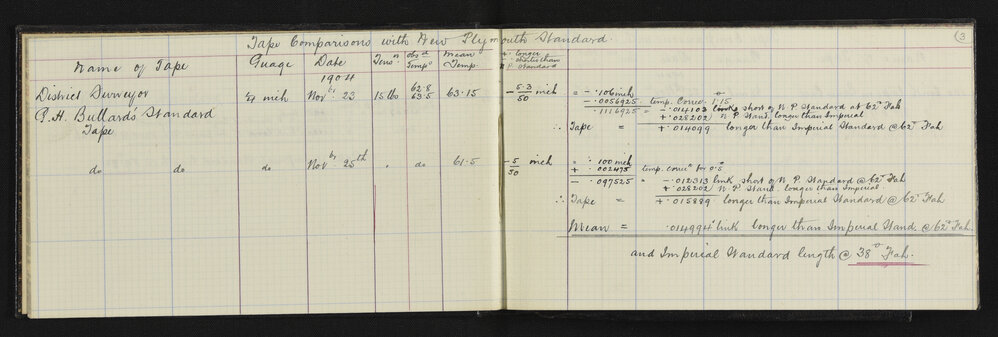 Tape Comparisons with New Plymouth Standard.
(3
Name of Tape Guage Date Tensn obsd Tempe Mean Temp. + longer - shorter than N P Standard
1904
District Surveyor 1/4 inch Novbr 23 15 lbs 62.8 63.5 63.15 - 5.3/50 inch = - .106 inch
- .0056925 temp. Correc. 1.15°
G. H. Bullard's Standard Tape
- .1116925 = - .014103 link short of N P Standard at 62° Fah
+ .028202 N P Stand. longer than Imperial
∴ Tape = + .014099 longer than Imperial Standard @ 62° Fah
do do do Novbr 25th " do 61.5 - 5/50 inch = - .100 inch
+ .002475 temp. correcn for 0.5°
- .097525 = - .012313 link short of N P Standard @ 62° Fah
+ .028202 N P Stand. longer than Imperial
∴ Tape = + .015889 longer than Imperial Standard @ 62° Fah
Mean = .014994 link longer than Imperial Stand. @ 62° Fah.
and Imperial Standard length @ 38° Fah.